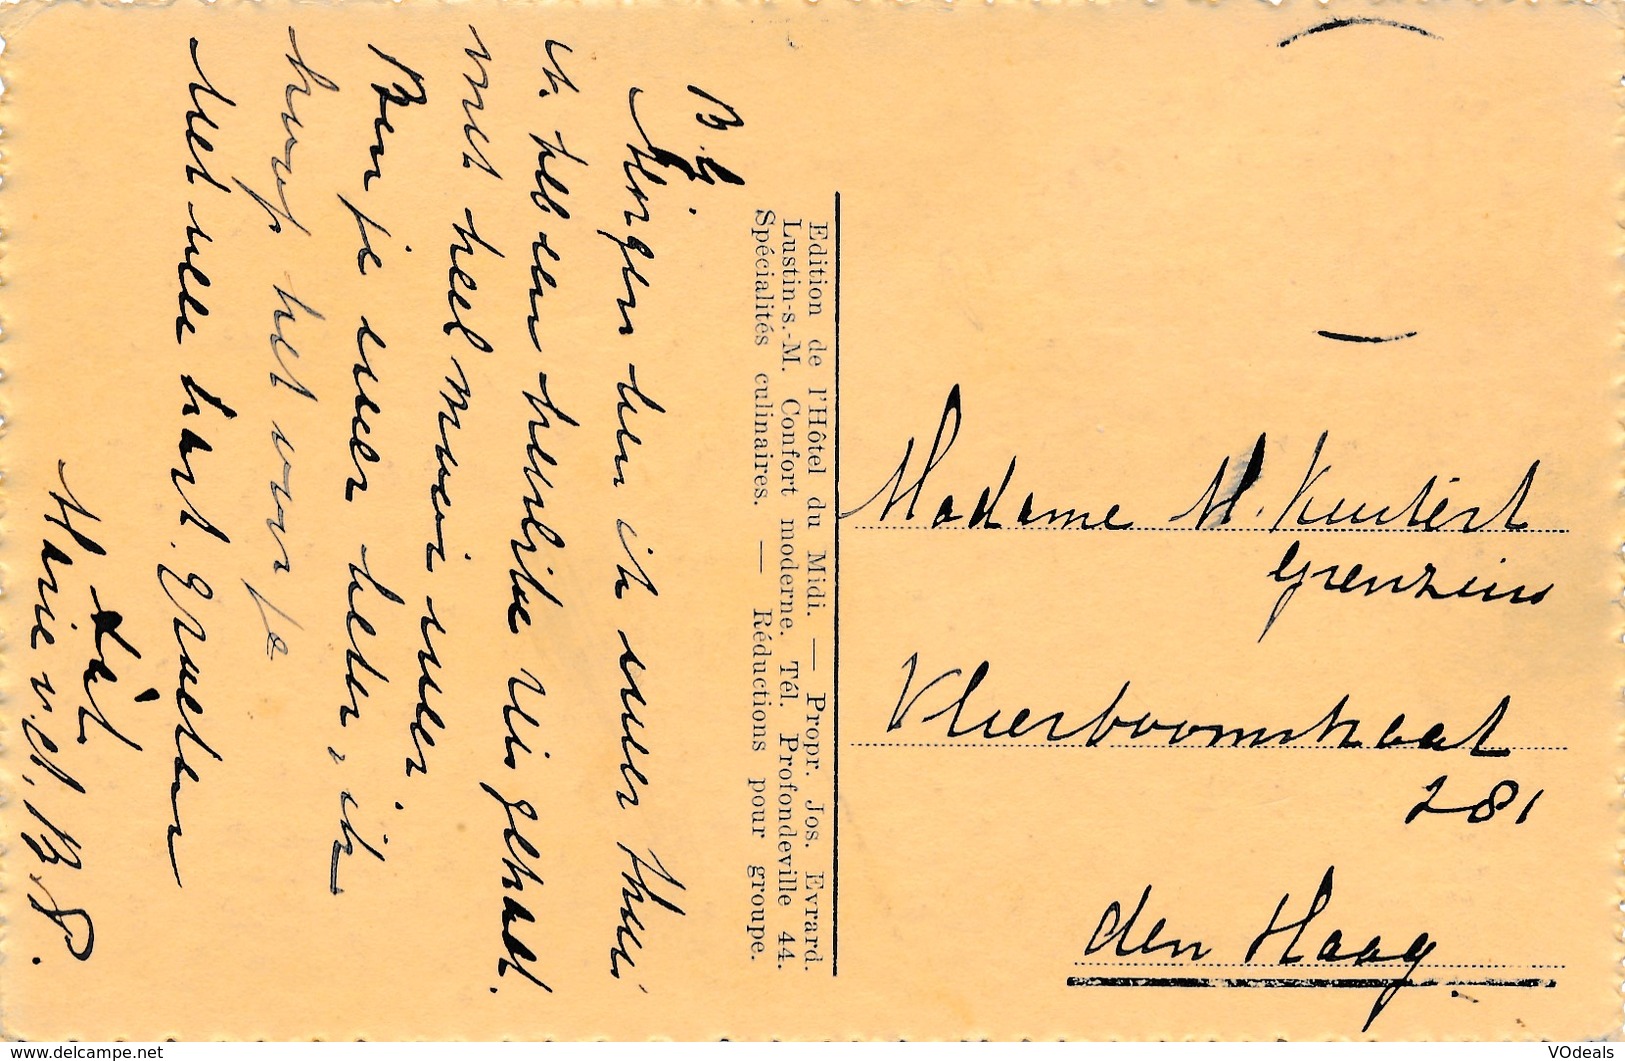 B.G.
Morgen ben ik weer thuis
ik heb een heerlijke reis gehad.
met heel mooi weer
Ben je weer beter, ik
hoop het voor je
Met vele hart. groeten
Marie v.d. B.
Edition de l'Hôtel du Midi. — Propr. Jos. Evrard.
Lustin-s.-M. Confort moderne. Tél. Profondeville 44.
Spécialités culinaires. — Réductions pour groupe.
Madame M.
Vlierboomstraat
281
den Haag
VOdeals
www.delcampe.net